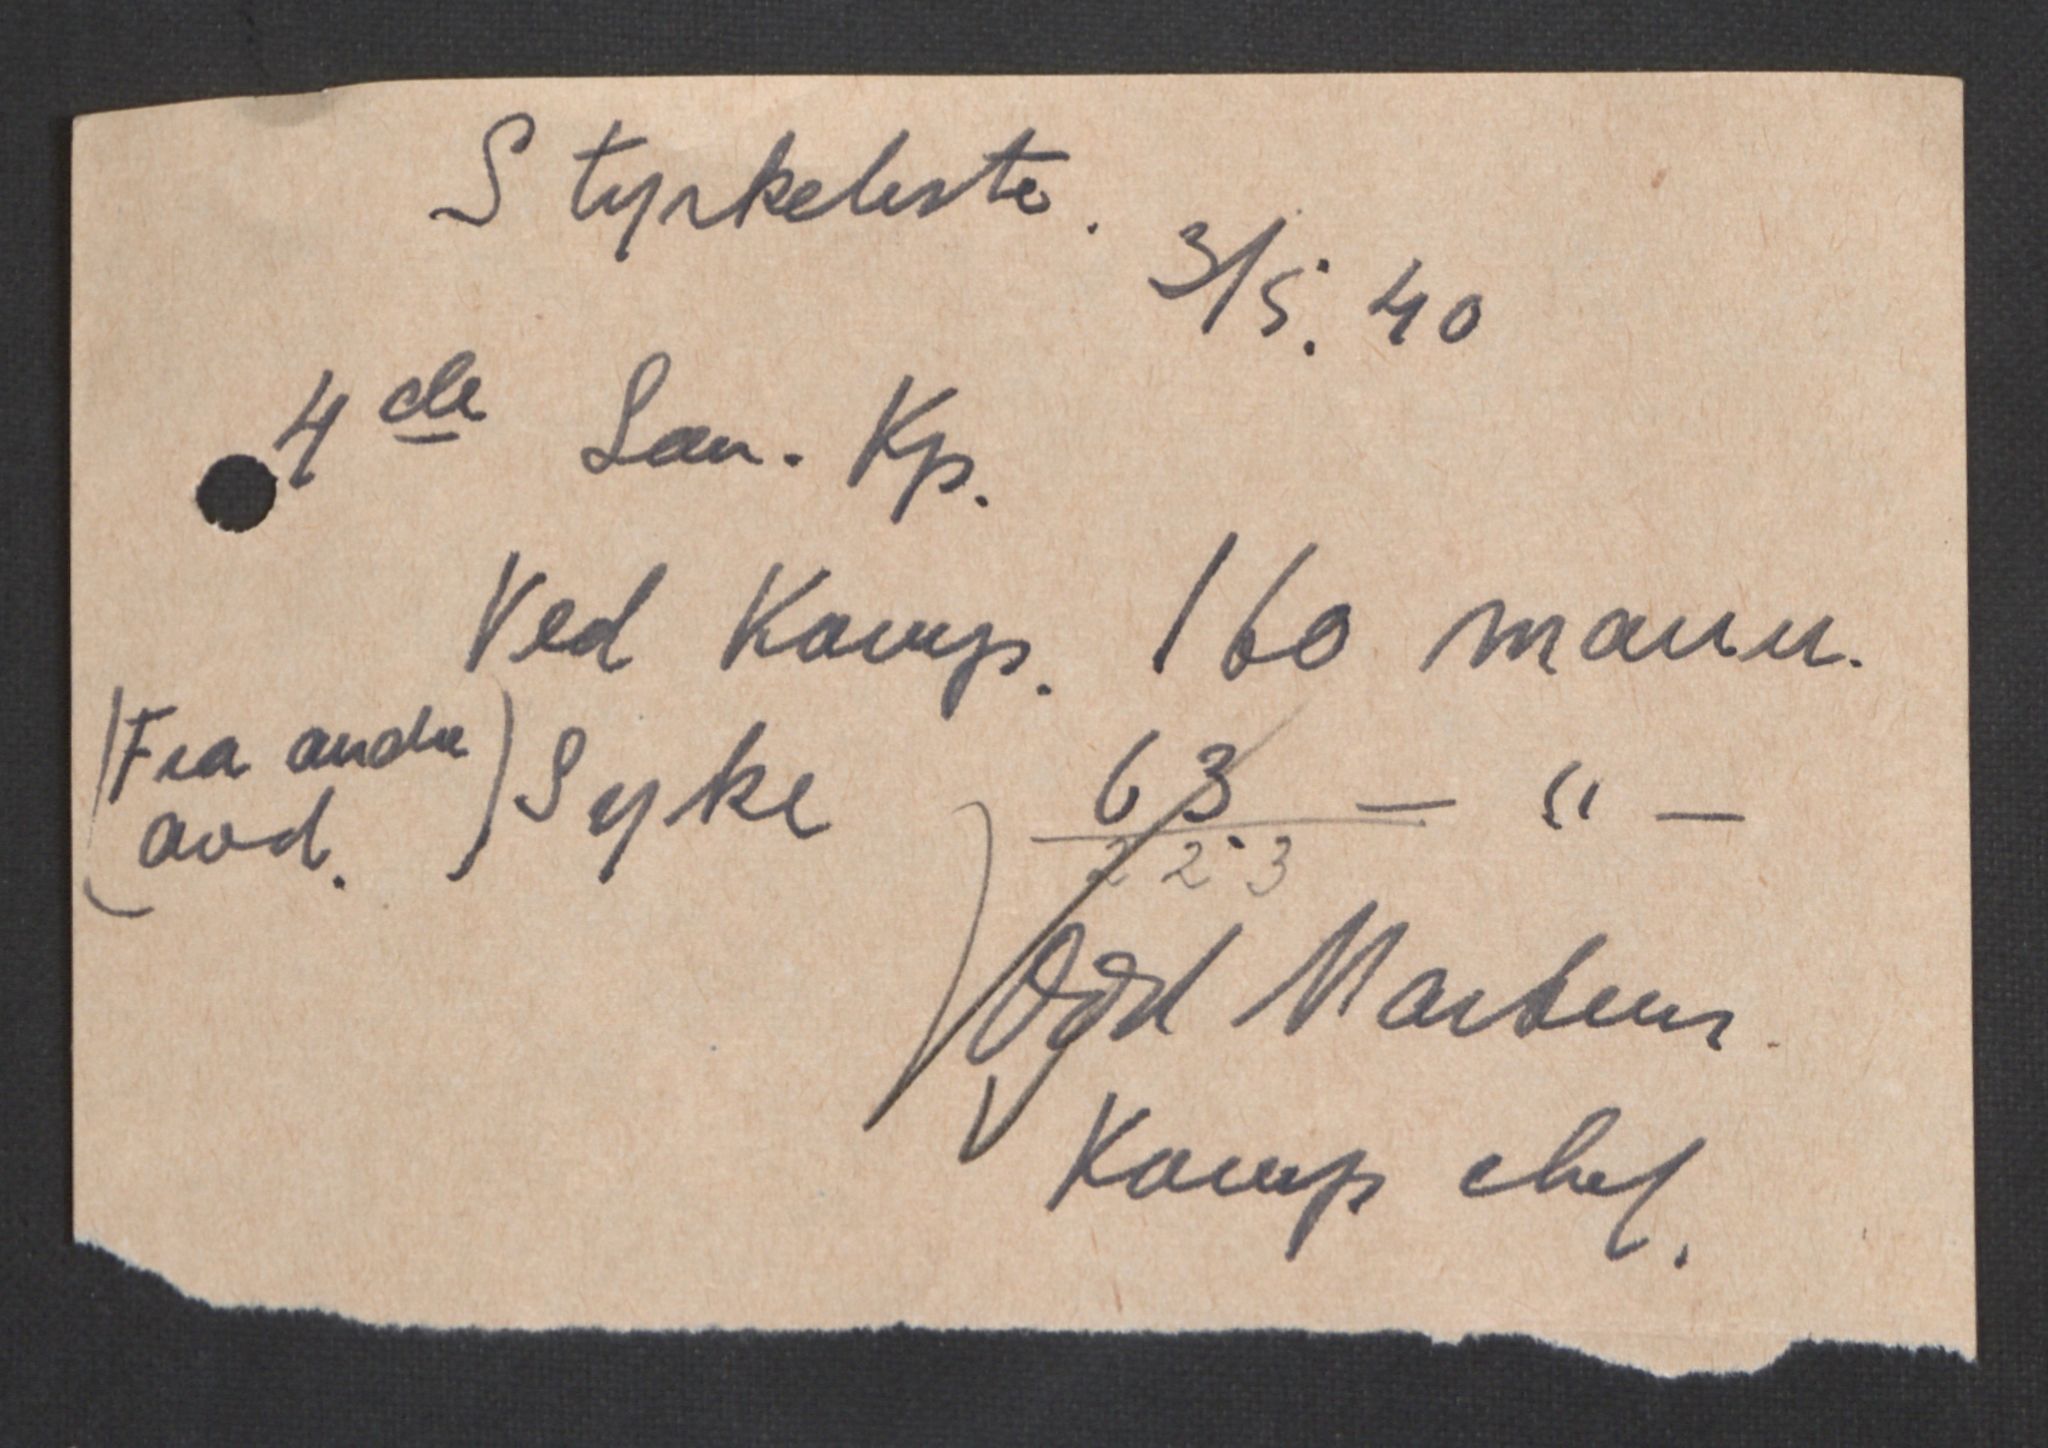 Styrkeliste.
3/5. 40
4de San. Kp.
Ved Komp. 160 mann.
(Fra andre avd.) Syke 63. — " —
223
Odd Martens.
Komp chef.